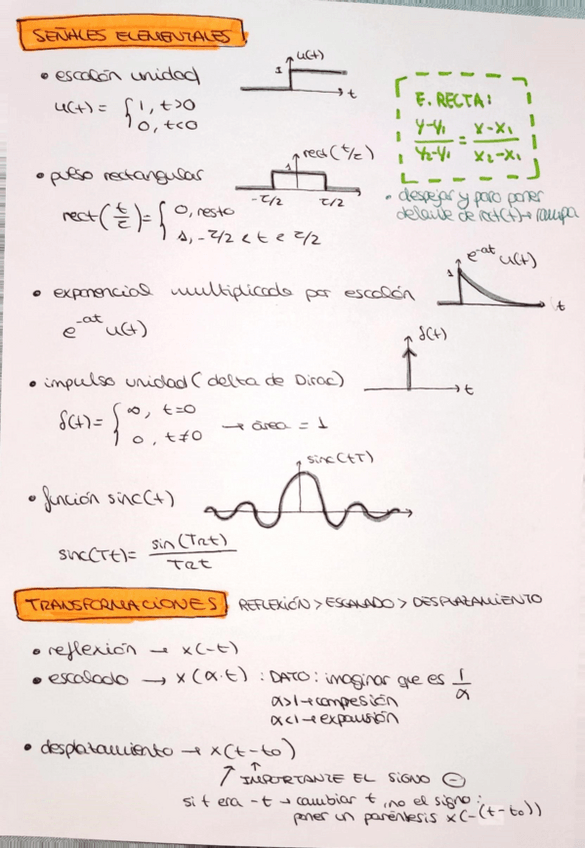 SEÑALES ELEMENTALES
• escalón unidad
u(t) = { 1, t>0
0, t<0
u(t)
1
t
E. RECTA:
y-y₁ / y₂-y₁ = x-x₁ / x₂-x₁
• despejar y para poner
delante de rect(t) → rampa
• pulso rectangular
rect(t/τ) = { 0, resto
1, -τ/2 < t < τ/2
rect(t/τ)
1
-τ/2 τ/2
• exponencial multiplicada por escalón
e^-at u(t)
e^-at u(t)
1
t
• impulso unidad (delta de Dirac)
δ(t) = { ∞, t=0
0, t≠0 → área = 1
δ(t)
t
• función sinc(t)
sinc(tT)
sinc(Tt) = sin(Tπt) / Tπt
TRANSFORMACIONES REFLEXIÓN > ESCALADO > DESPLAZAMIENTO
• reflexión → x(-t)
• escalado → x(α·t) : DATO: imaginar que es 1/α
α>1 → compresión
α<1 → expansión
• desplazamiento → x(t-t₀)
IMPORTANTE EL SIGNO ⊖
si t era -t → cambiar t, no el signo:
poner un paréntesis x(-(t-t₀))